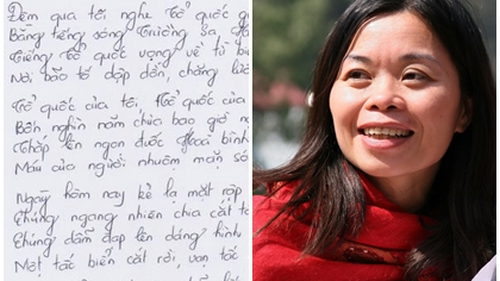 Đêm qua tôi nghe Tổ quốc g
Bằng tiếng sóng Trường Sa,
Tiếng Tổ quốc vọng về từ bi
Nơi bão tố dập dồn, chăng lướ
Tổ quốc của tôi, Tổ quốc của
Bốn nghìn năm chưa bao giờ ng
Thắp lên ngọn đuốc Hoà bình
Máu của người nhuộm mặn só
Ngày hôm nay kẻ lạ mặt rập
Chúng ngang nhiên chia cắt
Chúng dẫm đạp lên dáng hình
Một tấc biển cắt rời, vạn tấc